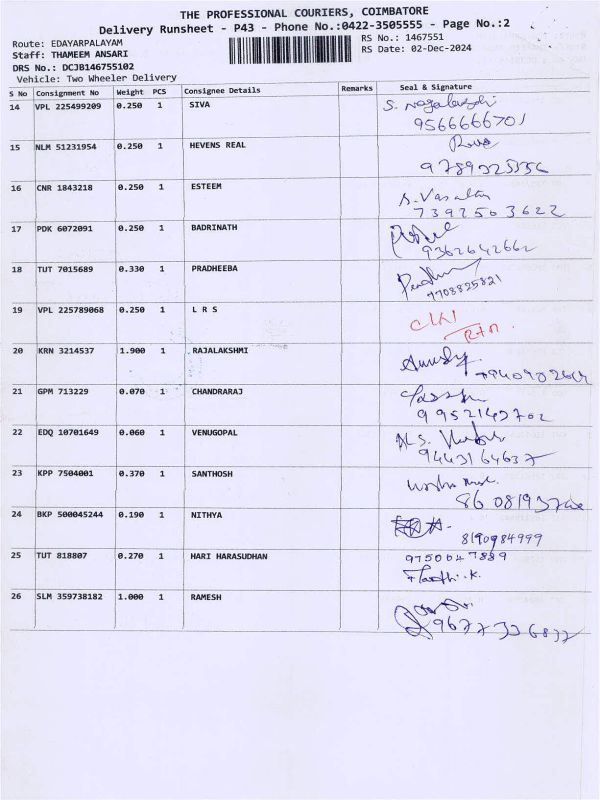 THE PROFESSIONAL COURIERS, COIMBATORE
Delivery Runsheet - P43 - Phone No.:0422-3505555 - Page No.:2
Route: EDAYARPALAYAM
RS No.: 1467551
Staff: THAMEEM ANSARI
RS Date: 02-Dec-2024
DRS No.: DCJB146755102
Vehicle: Two Wheeler Delivery
S No Consignment No Weight PCS Consignee Details Remarks Seal & Signature
14 VPL 225499209 0.250 1 SIVA
9566666701
15 NLM 51231954 0.250 1 HEVENS REAL
16 CNR 1843218 0.250 1 ESTEEM
S. Vasantha
7392503622
17 PDK 6072091 0.250 1 BADRINATH
9362642662
18 TUT 7015689 0.330 1 PRADHEEBA
7708825821
19 VPL 225789068 0.250 1 L R S
RTN
20 KRN 3214537 1.900 1 RAJALAKSHMI
21 GPM 713229 0.070 1 CHANDRARAJ
9952143702
22 EDQ 10701649 0.060 1 VENUGOPAL
9443164637
23 KPP 7504001 0.370 1 SANTHOSH
24 BKP 500045244 0.190 1 NITHYA
8190984999
25 TUT 818807 0.270 1 HARI HARASUDHAN
9750047889
26 SLM 359738182 1.000 1 RAMESH